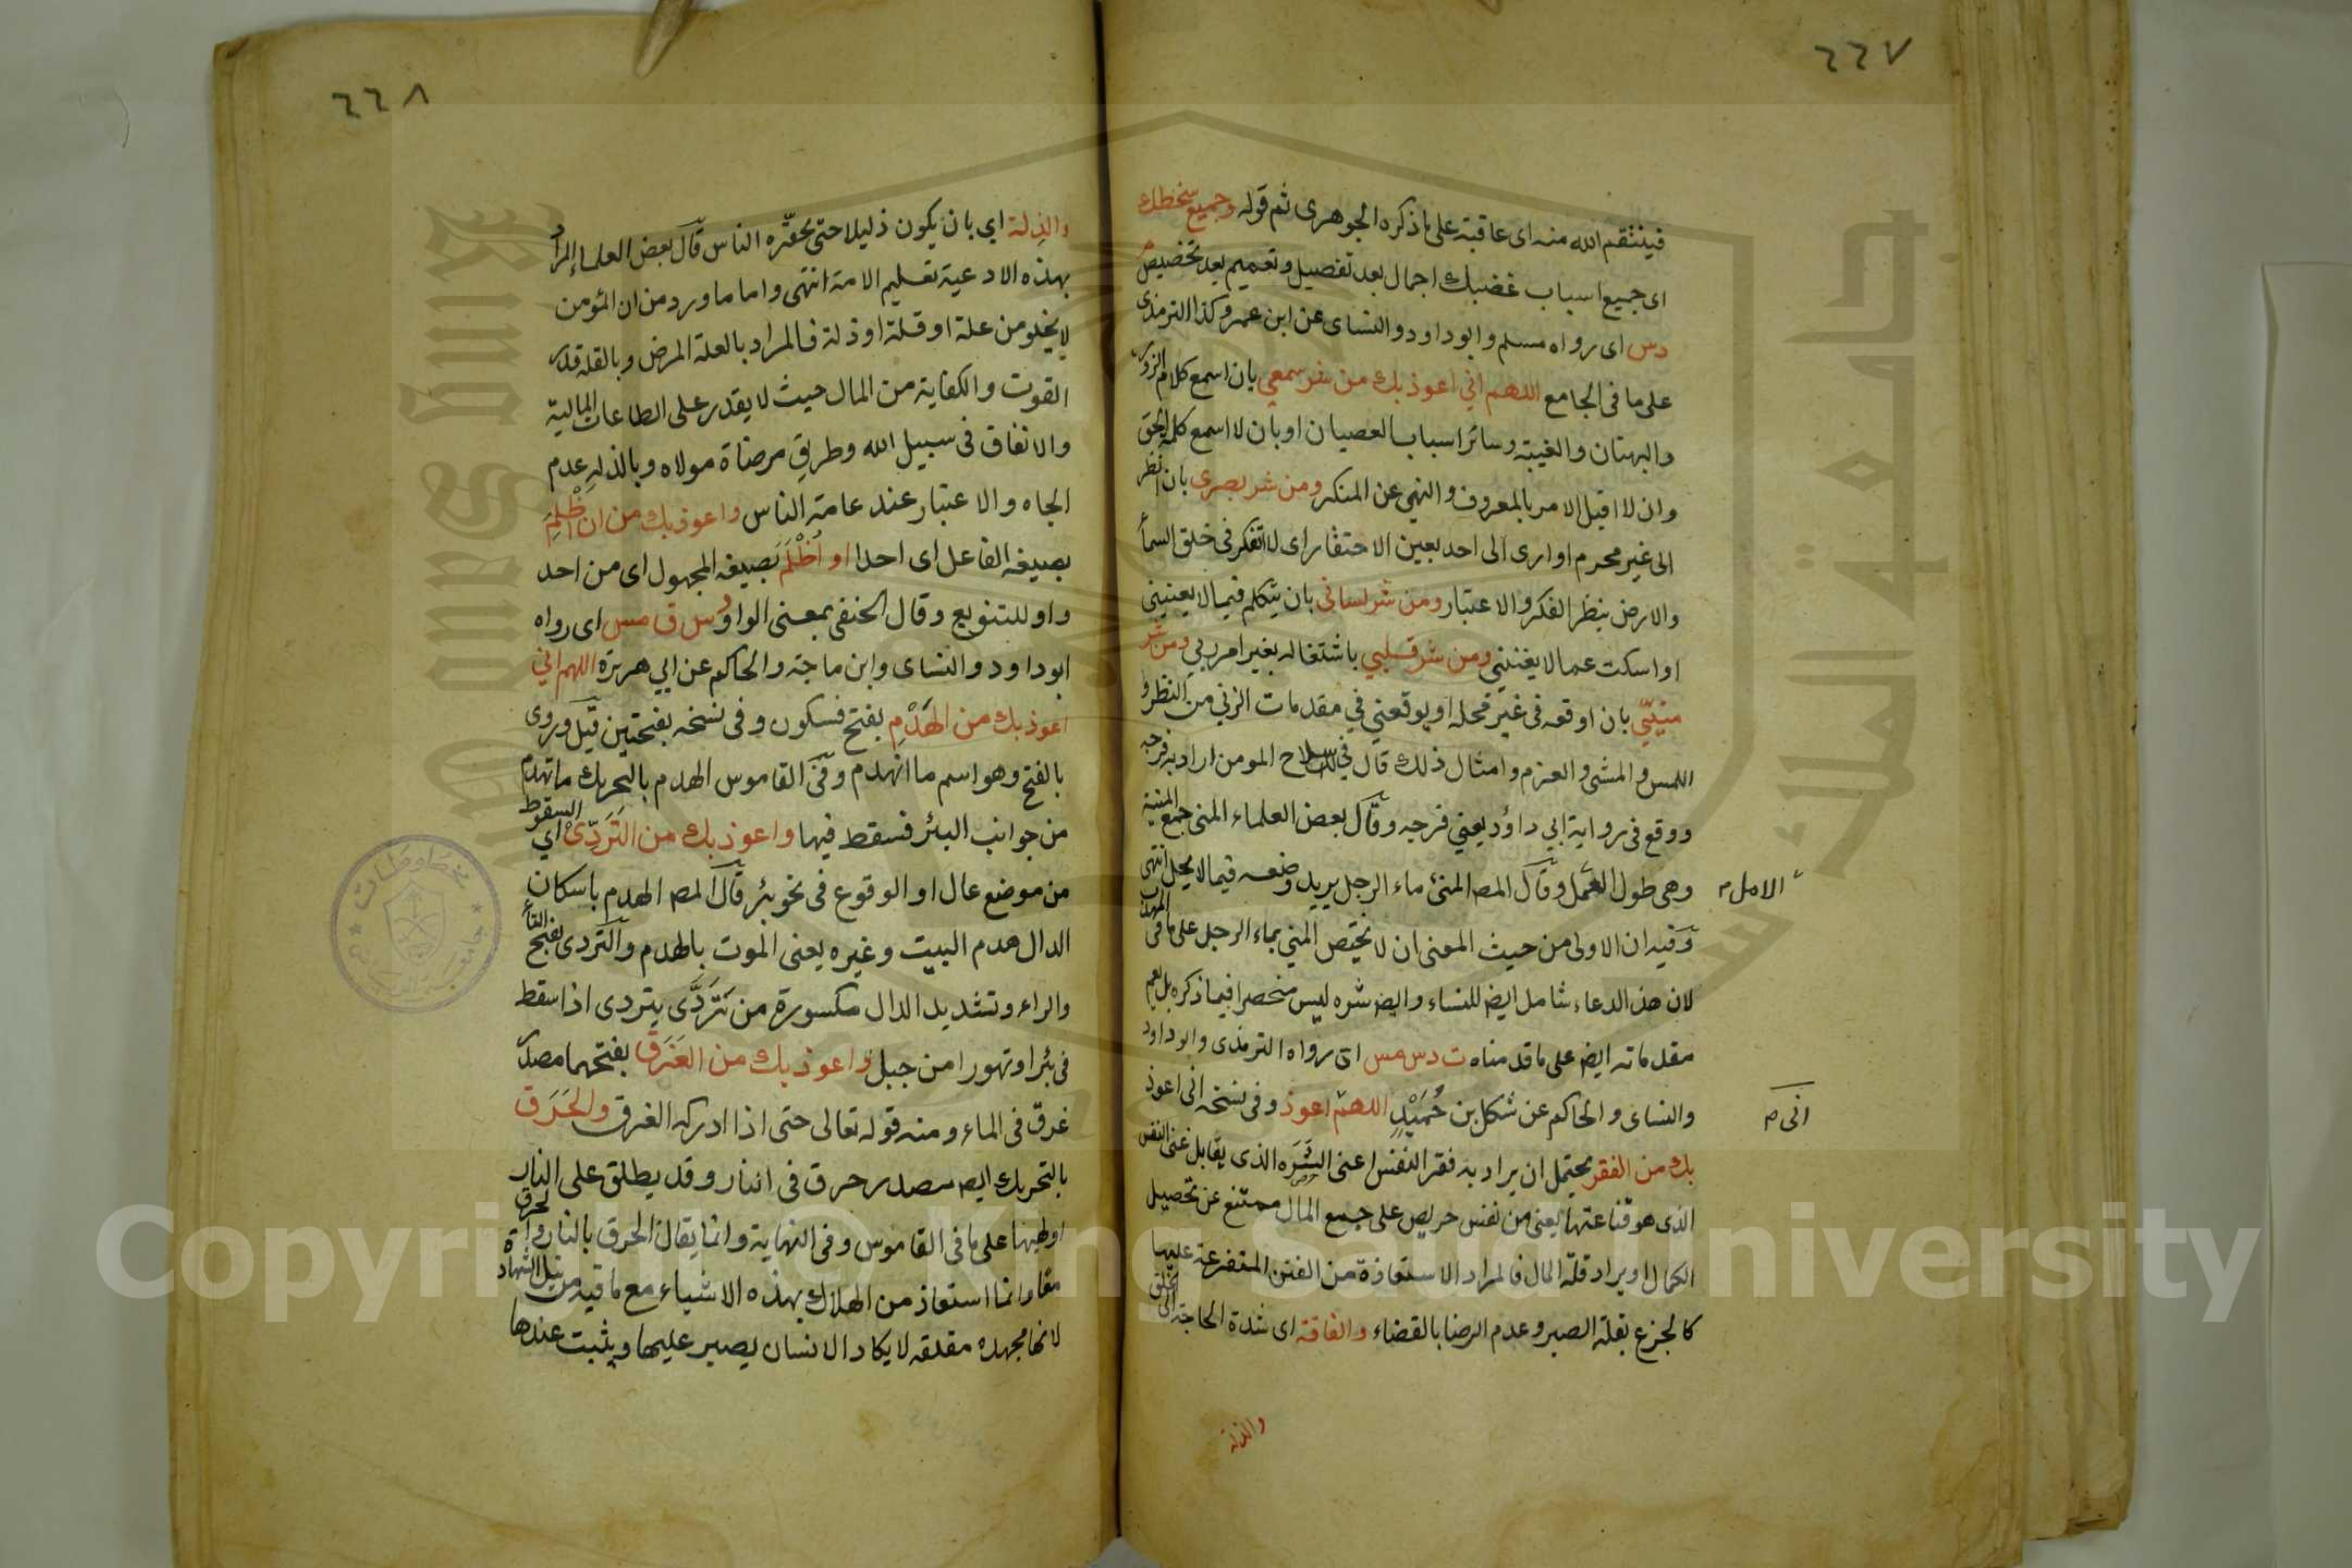 ٢٢٧
فينتقم الله منه اى عاقبة على ما ذكره الجوهرى ثم قوله وجميع سخطك
اى جميع اسباب غضبك اجمال بعد تفصيل وتعميم بعد تخصيص م
دس اى رواه مسلم وابوداود والنساى عن ابن عمر وكذا الترمذى
على ما فى الجامع اللهم اني اعوذ بك من شر سمعي بان اسمع كلام الزور
والبهتان والغيبة وسائر اسباب العصيان او بان لا اسمع كلمة الحق
وان لا اقبل الامر بالمعروف والنهي عن المنكر ومن شر بصرى بان انظر
الى غير محرم او ارى الى احد بعين الاحتقار اى لا اتفكر فى خلق السماء
والارض بنظر الفكر والاعتبار ومن شر لسانى بان يتكلم فيما لا يعنيني
او اسكت عما لا يغنيني ومن شر قلبي باشتغاله بغير امر ربي ومن شر
منيّي بان اوقعه فى غير محله او يوقعني في مقدمات الزني من النظر و
اللمس والمشى والعزم وامثال ذلك قال في سلاح المومن اراد به فرجه
ووقع فى رواية ابي داؤد يعني فرجه وقال بعض العلماء المنى جمع المنية
وهى طول العمل وقال المص المنى ماء الرجل يريد وضعه فيما لا يحل انتهى
الامل م
وفيه ان الاولى من حيث المعنى ان لا يختص المني بماء الرجل على ما فى المهذب
لان هذ الدعاء شامل ايض للنساء وايض شره ليس منحصرا فيما ذكره بل يعم
مقدماته ايض على ما قدمناه ت دس مس اى رواه الترمذى وابوداود
والنساى والحاكم عن شكل بن حُمَيْدٍ اللهمّ اعوذ وفى نسخه انى اعوذ
انى م
بك من الفقر يحتمل ان يراد به فقر النفس اعنى الشَرَه الذى يقابل غنى النفس
الذى هو قناعتها يعنى من نفس حريص على جمع المال ممتنع عن تحصيل
الكمال او يراد قلة المال فالمراد الاستعاذة من الفتن المتفرعة عليها
كالجزع بقلة الصبر وعدم الرضا بالقضاء والفاقة اى شدة الحاجة الى الخلق
والذلة
٢٢٨
والذِلة اي بان يكون ذليلا حتى يحقّره الناس قال بعض العلماء المراد
بهذه الادعية تعليم الامة انتهى واما ما ورد من ان المؤمن
لا يخلو من علة او قلة او ذلة فالمراد بالعلة المرض وبالقلة قدر
القوت والكفاية من المال حيث لا يقدر على الطاعات المالية
والانفاق فى سبيل الله وطريق مرضاة مولاه وبالذلة عدم
الجاه والاعتبار عند عامة الناس واعوذ بك من ان اَظْلِمَ
بصيغة الفاعل اى احدا او اُظْلَمَ بصيغه المجهول اى من احد
واو للتنويع وقال الحنفى بمعنى الواو دس ق مس اى رواه
ابوداود والنساى وابن ماجة والحاكم عن ابي هريرة اللهم اني
اعوذ بك من الهَدْمِ بفتح فسكون وفى نسخه بفتحتين قيل وروى
بالفتح وهو اسم ما انهدم وفى القاموس الهدم بالتحريك ما تهدم
من جوانب البئر فسقط فيها واعوذ بك من التَرَدّىْ اي السقوط
من موضع عال او الوقوع فى نحو بئر قال المص الهدم باسكان
الدال هدم البيت وغيره يعنى الموت بالهدم والتردى بفتح التاء
والراء وتشديد الدال مكسورة من تَرَدَّى يتردى اذا سقط
فى بئر او تهورا من جبل واعوذ بك من الغَرَق بفتحهما مصدر
غرق فى الماء ومنه قوله تعالى حتى اذا ادركه الغرق والحَرَق
بالتحريك ايض مصدر حرق فى النار وقد يطلق على النار
او لهبها على ما فى القاموس وفى النهاية وانما يقال الحرق بالنار والحرق
معا وانما استعاذ من الهلاك بهذه الاشياء مع ما فيه من نيل الشهادة
لانها مجهدة مقلقه لا يكاد الانسان يصبر عليها ويثبت عندها
مخطوطات
King Saud University
جامعة الملك سعود
Copyright © King Saud University